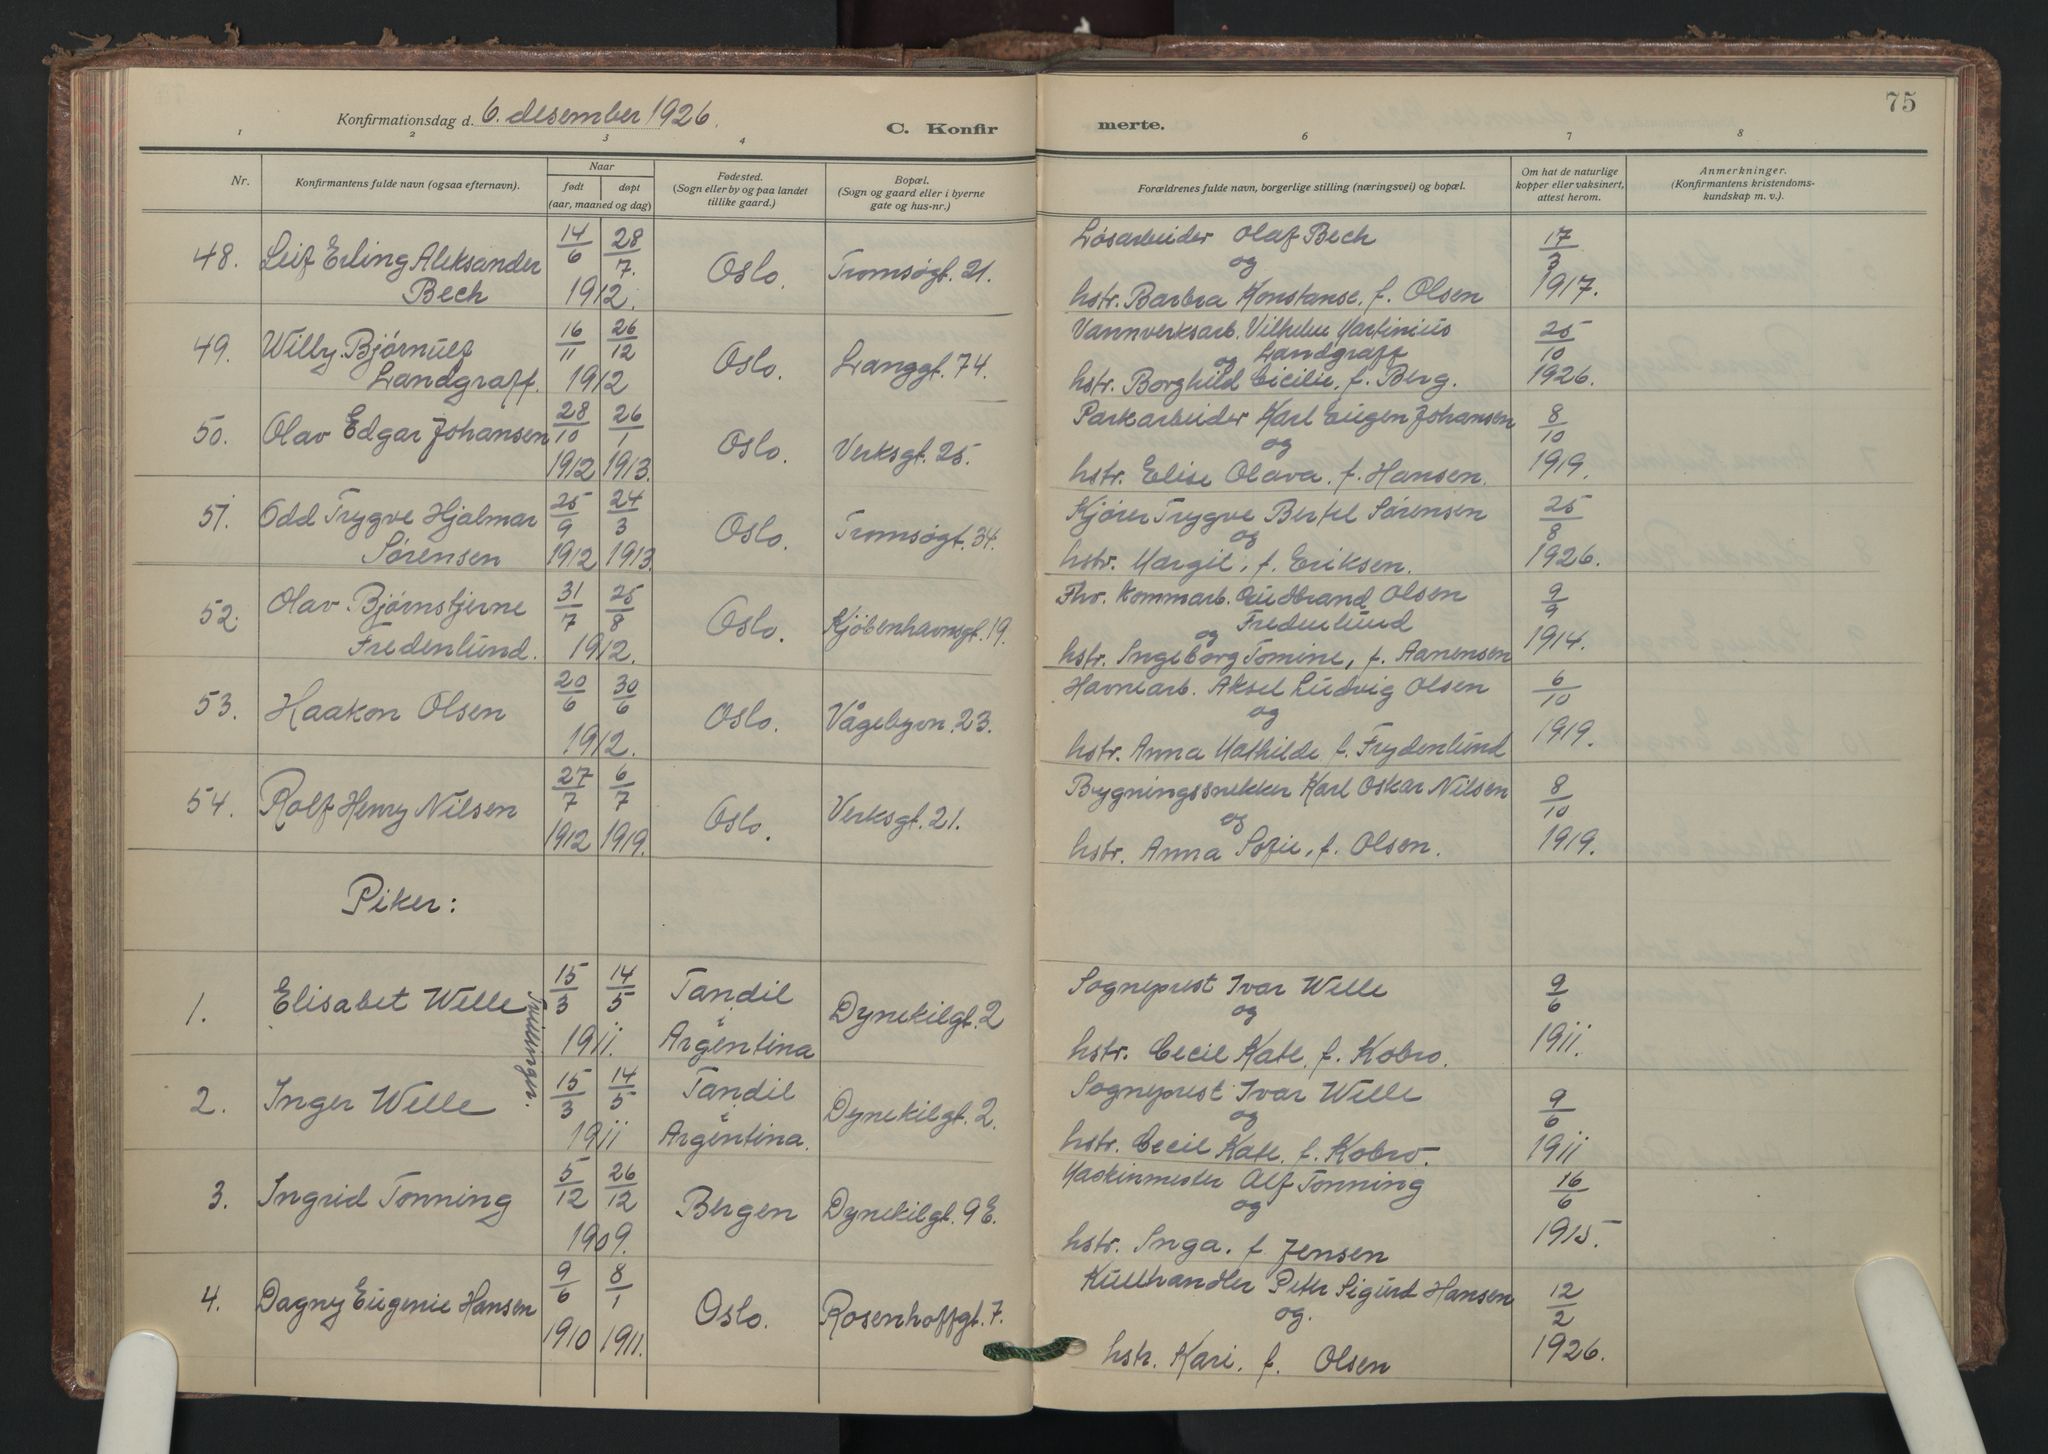 75
Konfirmationsdag d. 6. desember 1926.
C. Konfir merte.
1 2 3 4 6 7 8
Nr.
Konfirmantens fulde navn (ogsaa efternavn).
Naar
født
døpt
(aar, maaned og dag)
Fødested.
(Sogn eller by og paa landet
tillike gaard.)
Bopæl.
(Sogn og gaard eller i byerne
gate og hus-nr.)
Forældrenes fulde navn, borgerlige stilling (næringsvei) og bopæl.
Om hat de naturlige
kopper eller vaksinert,
attest herom.
Anmerkninger.
(Konfirmantens kristendoms-
kundskap m. v.).
48. Leif Erling Aleksander 14/6 28/7. Oslo. Tromsøgt. 21. Løsarbeider Olaf Bech 17/3
og
Bech 1912. hstr. Barbra Konstanse, f. Olsen 1917.
49. Willy Bjørnulf 16/11 26/12 Oslo. Langgt. 74. Vannverksarb. Vilhelm Martinius 25/10
og Landgraff
Landgraff. 1912 hstr. Borghild Cicilie, f. Berg. 1926.
50. Olav Edgar Johansen 28/10 26/1 Oslo. Verksgt. 25. Parkarbeider Karl Eugen Johansen 8/10
og
1912 1913. hstr. Elise Olava, f. Hansen. 1919.
51. Odd Trygve Hjalmar 25/9 24/3 Oslo. Tromsøgt. 34. Kjører Trygve Bertel Sørensen 25/8
og
Sørensen 1912 1913. hstr. Margit, f. Eriksen. 1926.
52. Olav Bjørnstjerne 31/7 25/8 Oslo. Kjøbenhavnsgt. 19. Fhv. Kommarb. Gudbrand Olsen 9/9
og Fredenlund
Fredenlund. 1912. hstr. Ingeborg Tomine, f. Aanensen 1914.
53. Haakon Olsen 20/6 30/6 Oslo. Vågebyvn. 23. Havnearb. Aksel Ludvig Olsen 6/10
og
1912. hstr. Anna Mathilde f. Frydenlund 1919.
54. Rolf Henry Nilsen 27/7 6/7 Oslo. Verksgt. 21. Bygningssnekker Karl Oskar Nilsen 8/10
og
1912 1919. hstr. Anna Sofie, f. Olsen. 1919.
Piker:
1. Elisabet Welle 15/3 14/5 Tandil Dynekilgt. 2 Sogneprest Ivar Welle 9/6
i og
1911. Argentina hstr. Cecil Kate, f. Kobro. 1911.
2. Inger Welle 15/3 14/5 Tandil Dynekilgt. 2. Sogneprest Ivar Welle 9/6
i og
1911 Argentina. hstr. Cecil Kate, f. Kobro. 1911
3. Ingrid Tonning 5/12 26/12 Bergen Dynekilgt. 9 E. Maskinmester Alf Tonning 16/6
og
1909. hstr. Inga, f. Jensen 1915.
4. Dagny Eugenie Hansen 9/6 8/1 Oslo. Rosenhoffgt. 7. Kullhandler Peter Sigurd Hansen 12/2
og.
1910 1911. hstr. Kari, f. Olsen 1926.